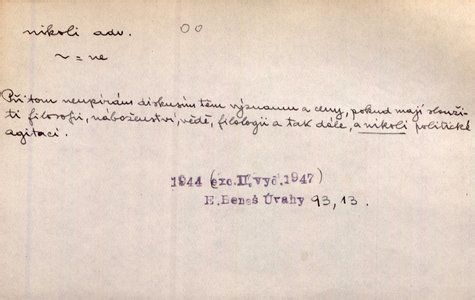 nikoli adv. OO
~ = ne
Při tom neupírám diskusím těm významu a ceny, pokud mají slouži-
ti filosofii, náboženství, vědě, filologii a tak dále, a nikoli politické
agitaci.
1944 (exc.II.vyd.1947)
E.Beneš Úvahy 93,13.